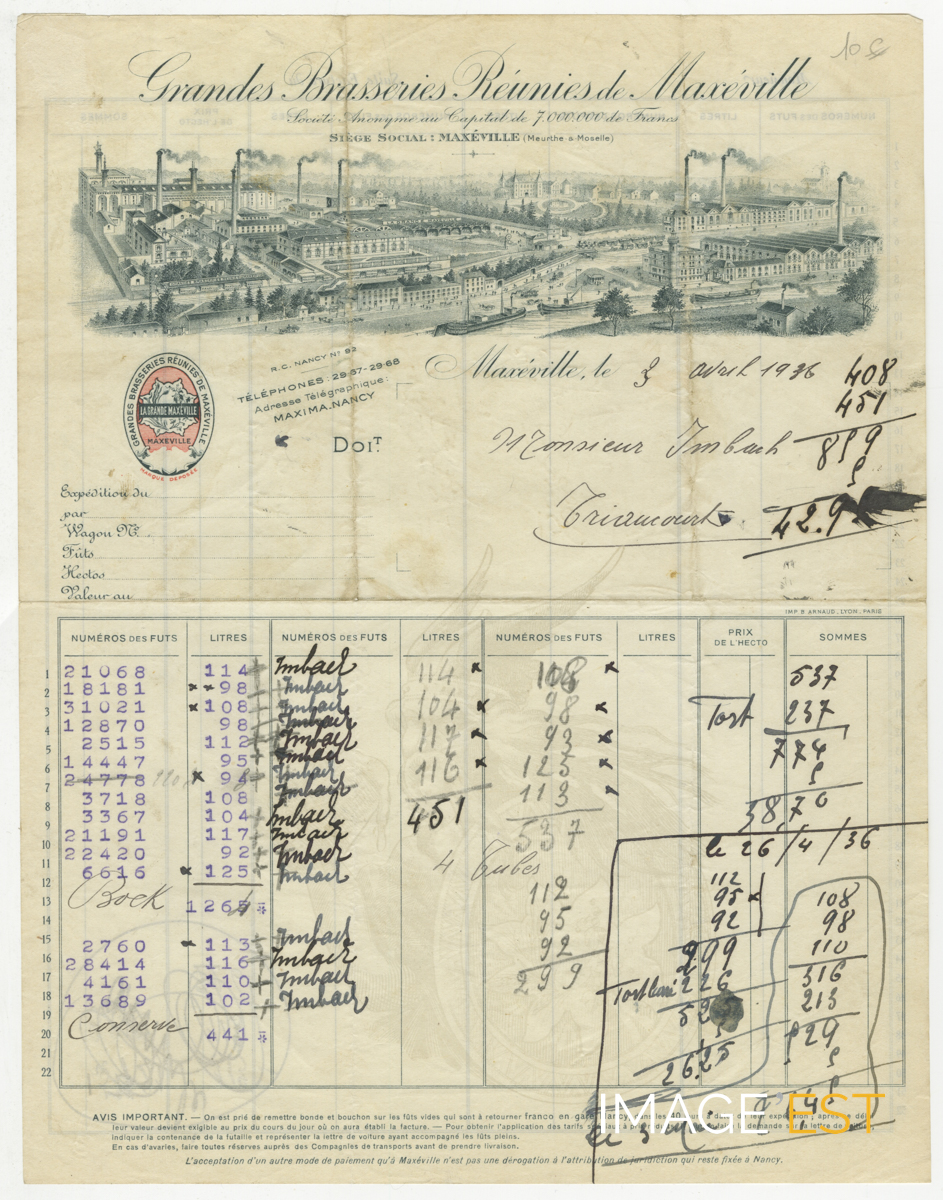 Grandes Brasseries Réunies de Maxéville
Société Anonyme au Capital de 7.000.000 de Francs
SIÈGE SOCIAL : MAXÉVILLE (Meurthe & Moselle)
GRANDES BRASSERIES RÉUNIES DE MAXÉVILLE
LA GRANDE MAXÉVILLE
MAXEVILLE
MARQUE DÉPOSÉE
R.C. NANCY Nº 92
TÉLÉPHONES : 29-37-29-68
Adresse Télégraphique :
MAXIMA.NANCY
Maxéville, le 3 avril 1936
408
451
859
DOIT
Monsieur Imbach
Triancourt
42.9
Expédition du
par
Wagon Nº
Fûts
Hectos
Valeur au
IMP. B. ARNAUD, LYON, PARIS
NUMÉROS DES FUTS LITRES NUMÉROS DES FUTS LITRES NUMÉROS DES FUTS LITRES PRIX DE L'HECTO SOMMES
1 21068 114 Imbach 114 108 537
2 18181 98 Imbach
3 31021 108 Imbach 104 98 Tort 237
4 12870 98 Imbach
5 2515 112 Imbach 117 93 774
6 14447 95 Imbach 116 125
7 24778 94 Imbach 113
8 3718 108 Imbach 38,70
9 3367 104 Imbach 451 537
10 21191 117 Imbach le 26/4/36
11 22420 92 Imbach 4 Tubes
12 6616 125 Imbach 112 112
13 Bock 95 95 108
14 1265 92 98
15 2760 113 Imbach 92 110
16 28414 116 Imbach 299 316
17 4161 110 Imbach 299 226 213
18 13689 102 Imbach
19 Conserve 529
20 441
21 26.25
22
AVIS IMPORTANT. — On est prié de remettre bonde et bouchon sur les fûts vides qui sont à retourner franco en gare Nancy, dans les 40 jours de leur expédition ; après ce
leur valeur devient exigible au prix du cours du jour où on aura établi la facture. — Pour obtenir l'application des tarifs la demande sur la lettre de
indiquer la contenance de la futaille et représenter la lettre de voiture ayant accompagné les fûts pleins.
En cas d'avaries, faire toutes réserves auprès des Compagnies de transports avant de prendre livraison.
L'acceptation d'un autre mode de paiement qu'à Maxéville n'est pas une dérogation à l'attribution de juridiction qui reste fixée à Nancy.
IMAGE EST